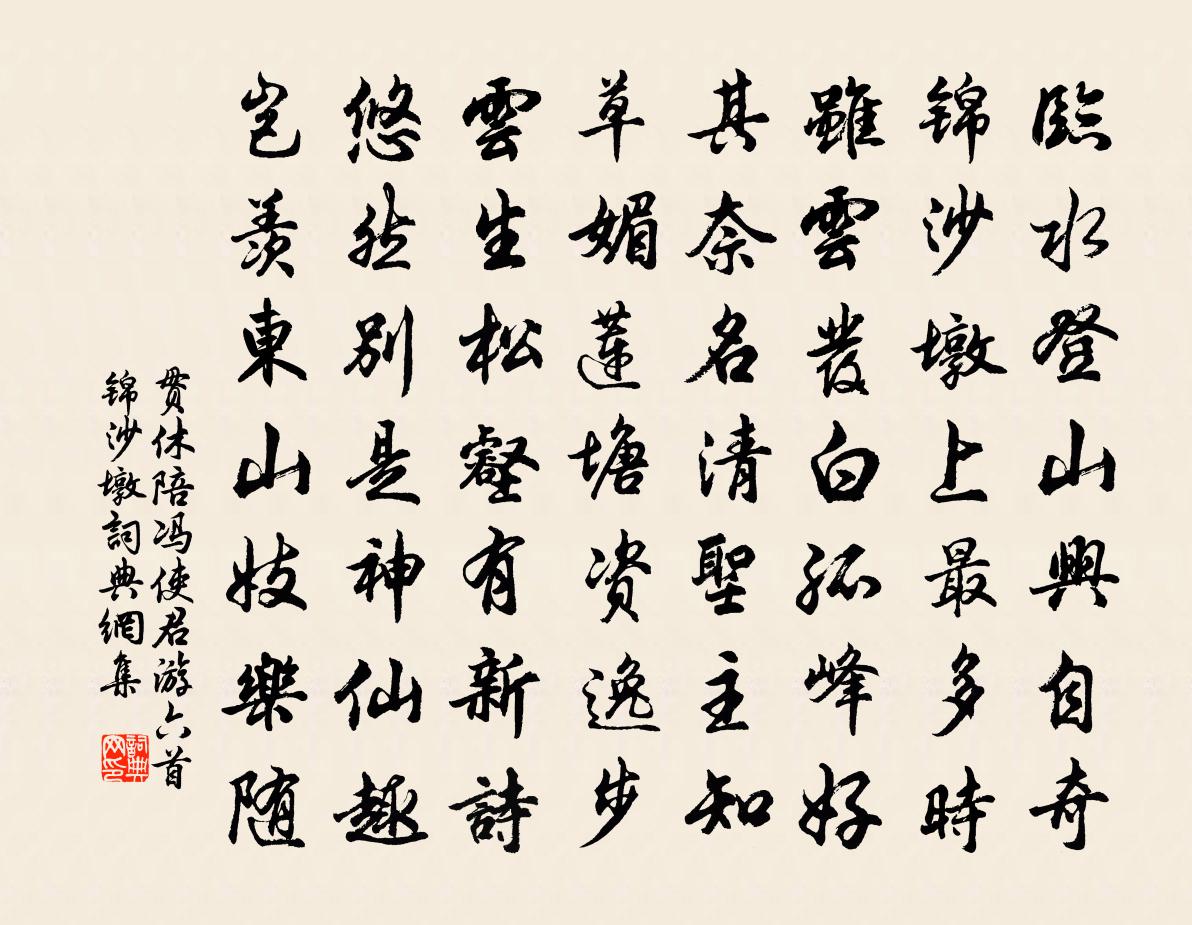 臨水登山興自奇
锦沙墩上最多時
雖雲發白孤峰好
其奈名清聖主知
草媚蓮塘資逸步
雲生松壑有新詩
悠然別是神仙趣
豈羨東山妓樂随
贯休陪冯使君游六首
锦沙墩詞典網集
詞典
网印